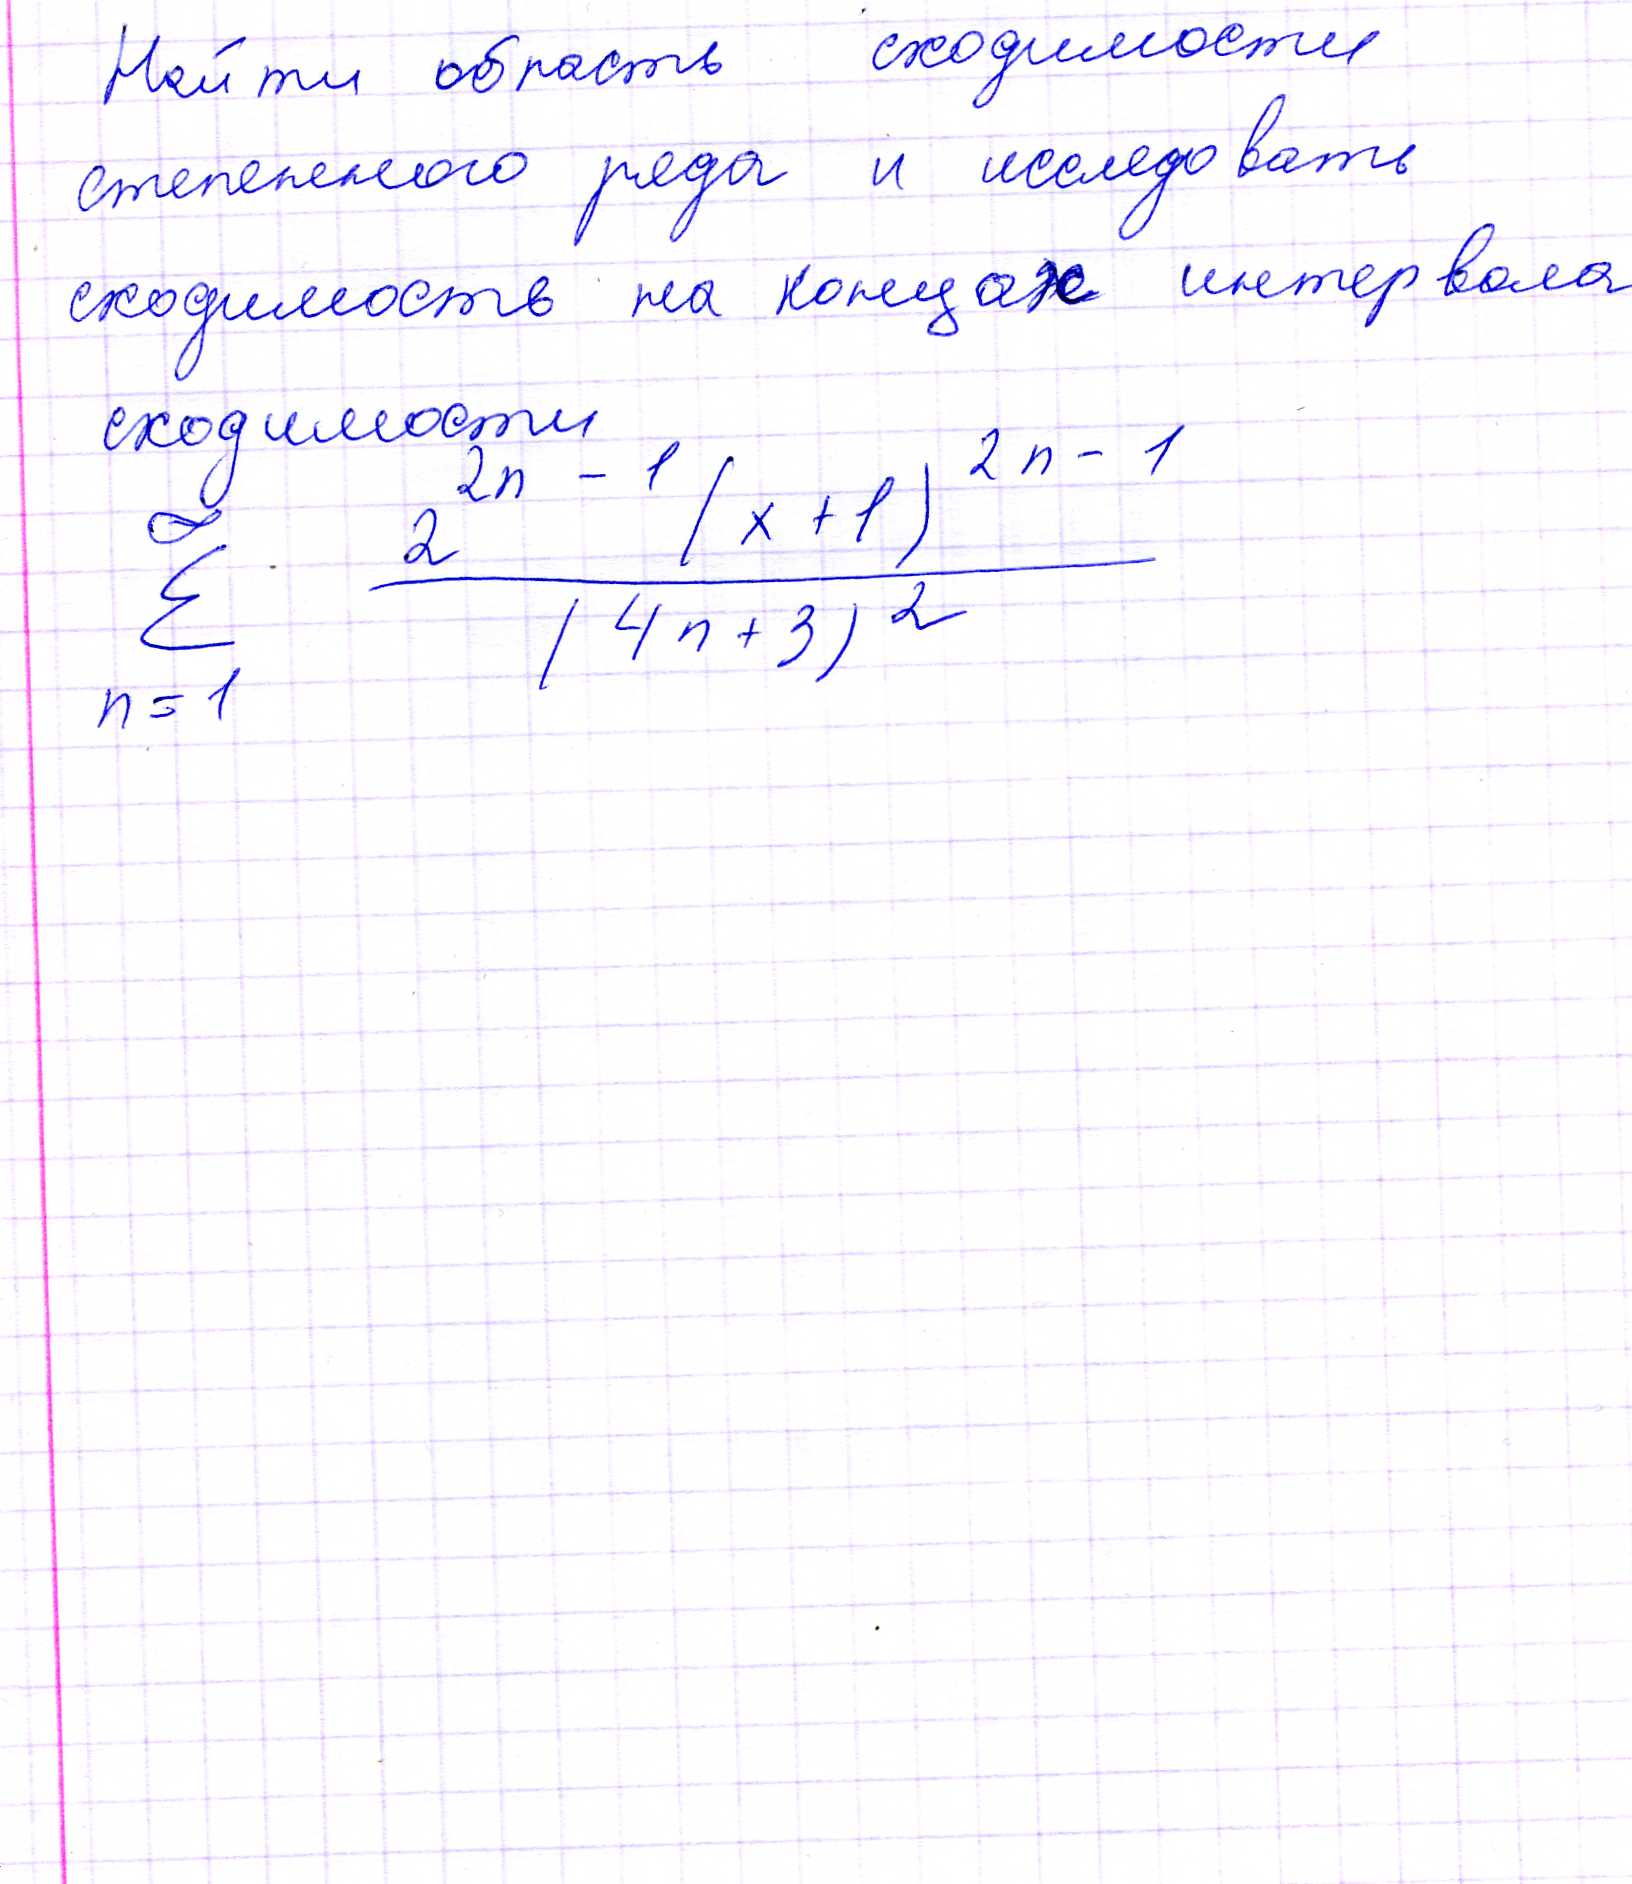 Найти область сходимости
степенного ряда и исследовать
сходимость на концах интервала
сходимости
∞
Σ
n=1
2^{2n-1} (x+1)^{2n-1}
(4n+3)^2